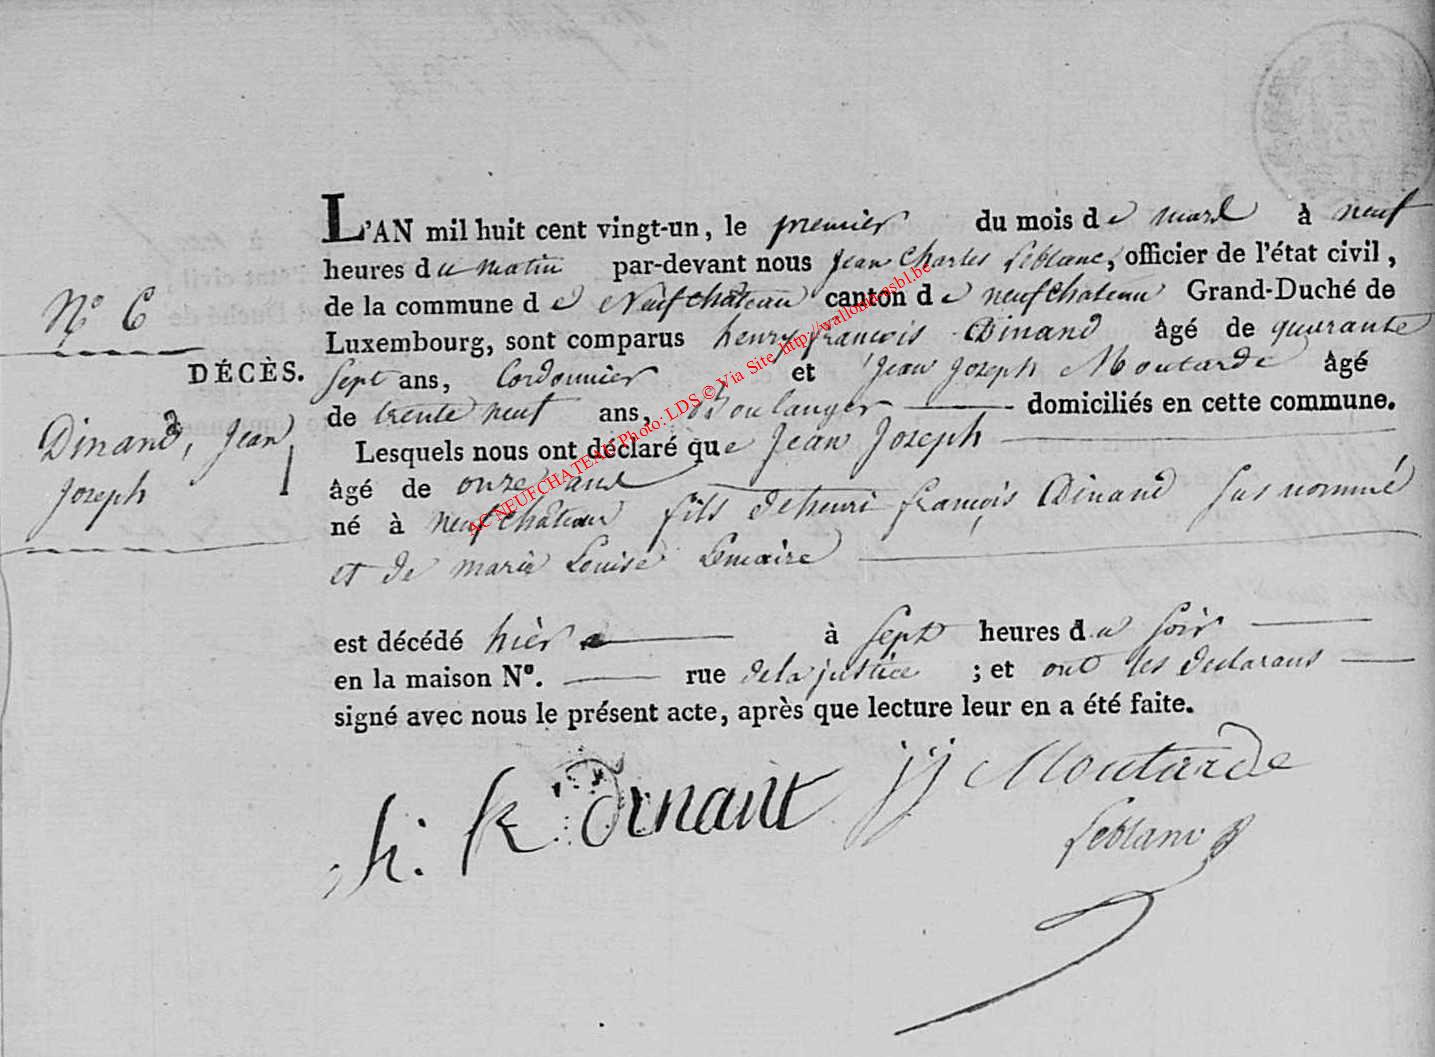 L'AN mil huit cent vingt-un, le premier du mois de mars à neuf
heures du matin par-devant nous Jean Charles Leblanc, officier de l'état civil,
de la commune de Neufchâteau canton de neufchateau Grand-Duché de
Luxembourg, sont comparus henry françois Dinand âgé de quarante
Sept ans, Cordonnier et Jean Joseph Moutarde âgé
de trente neuf ans, Boulanger domiciliés en cette commune.
Lesquels nous ont déclaré que Jean Joseph
âgé de onze ans
né à neufchâteau fils de henri françois Dinand Susnommé
et de marie Louise Lemaire
est décédé hier à Sept heures du Soir
en la maison N°. rue de la justice ; et ont les declarans
signé avec nous le présent acte, après que lecture leur en a été faite.
N° 6
DÉCÈS.
Dinand, Jean
Joseph
h. f. Dinant jj Moutarde
Leblanc
AC NEUFCHATEAU Photo: LDS © Via Site http://wallonia-asbl.be